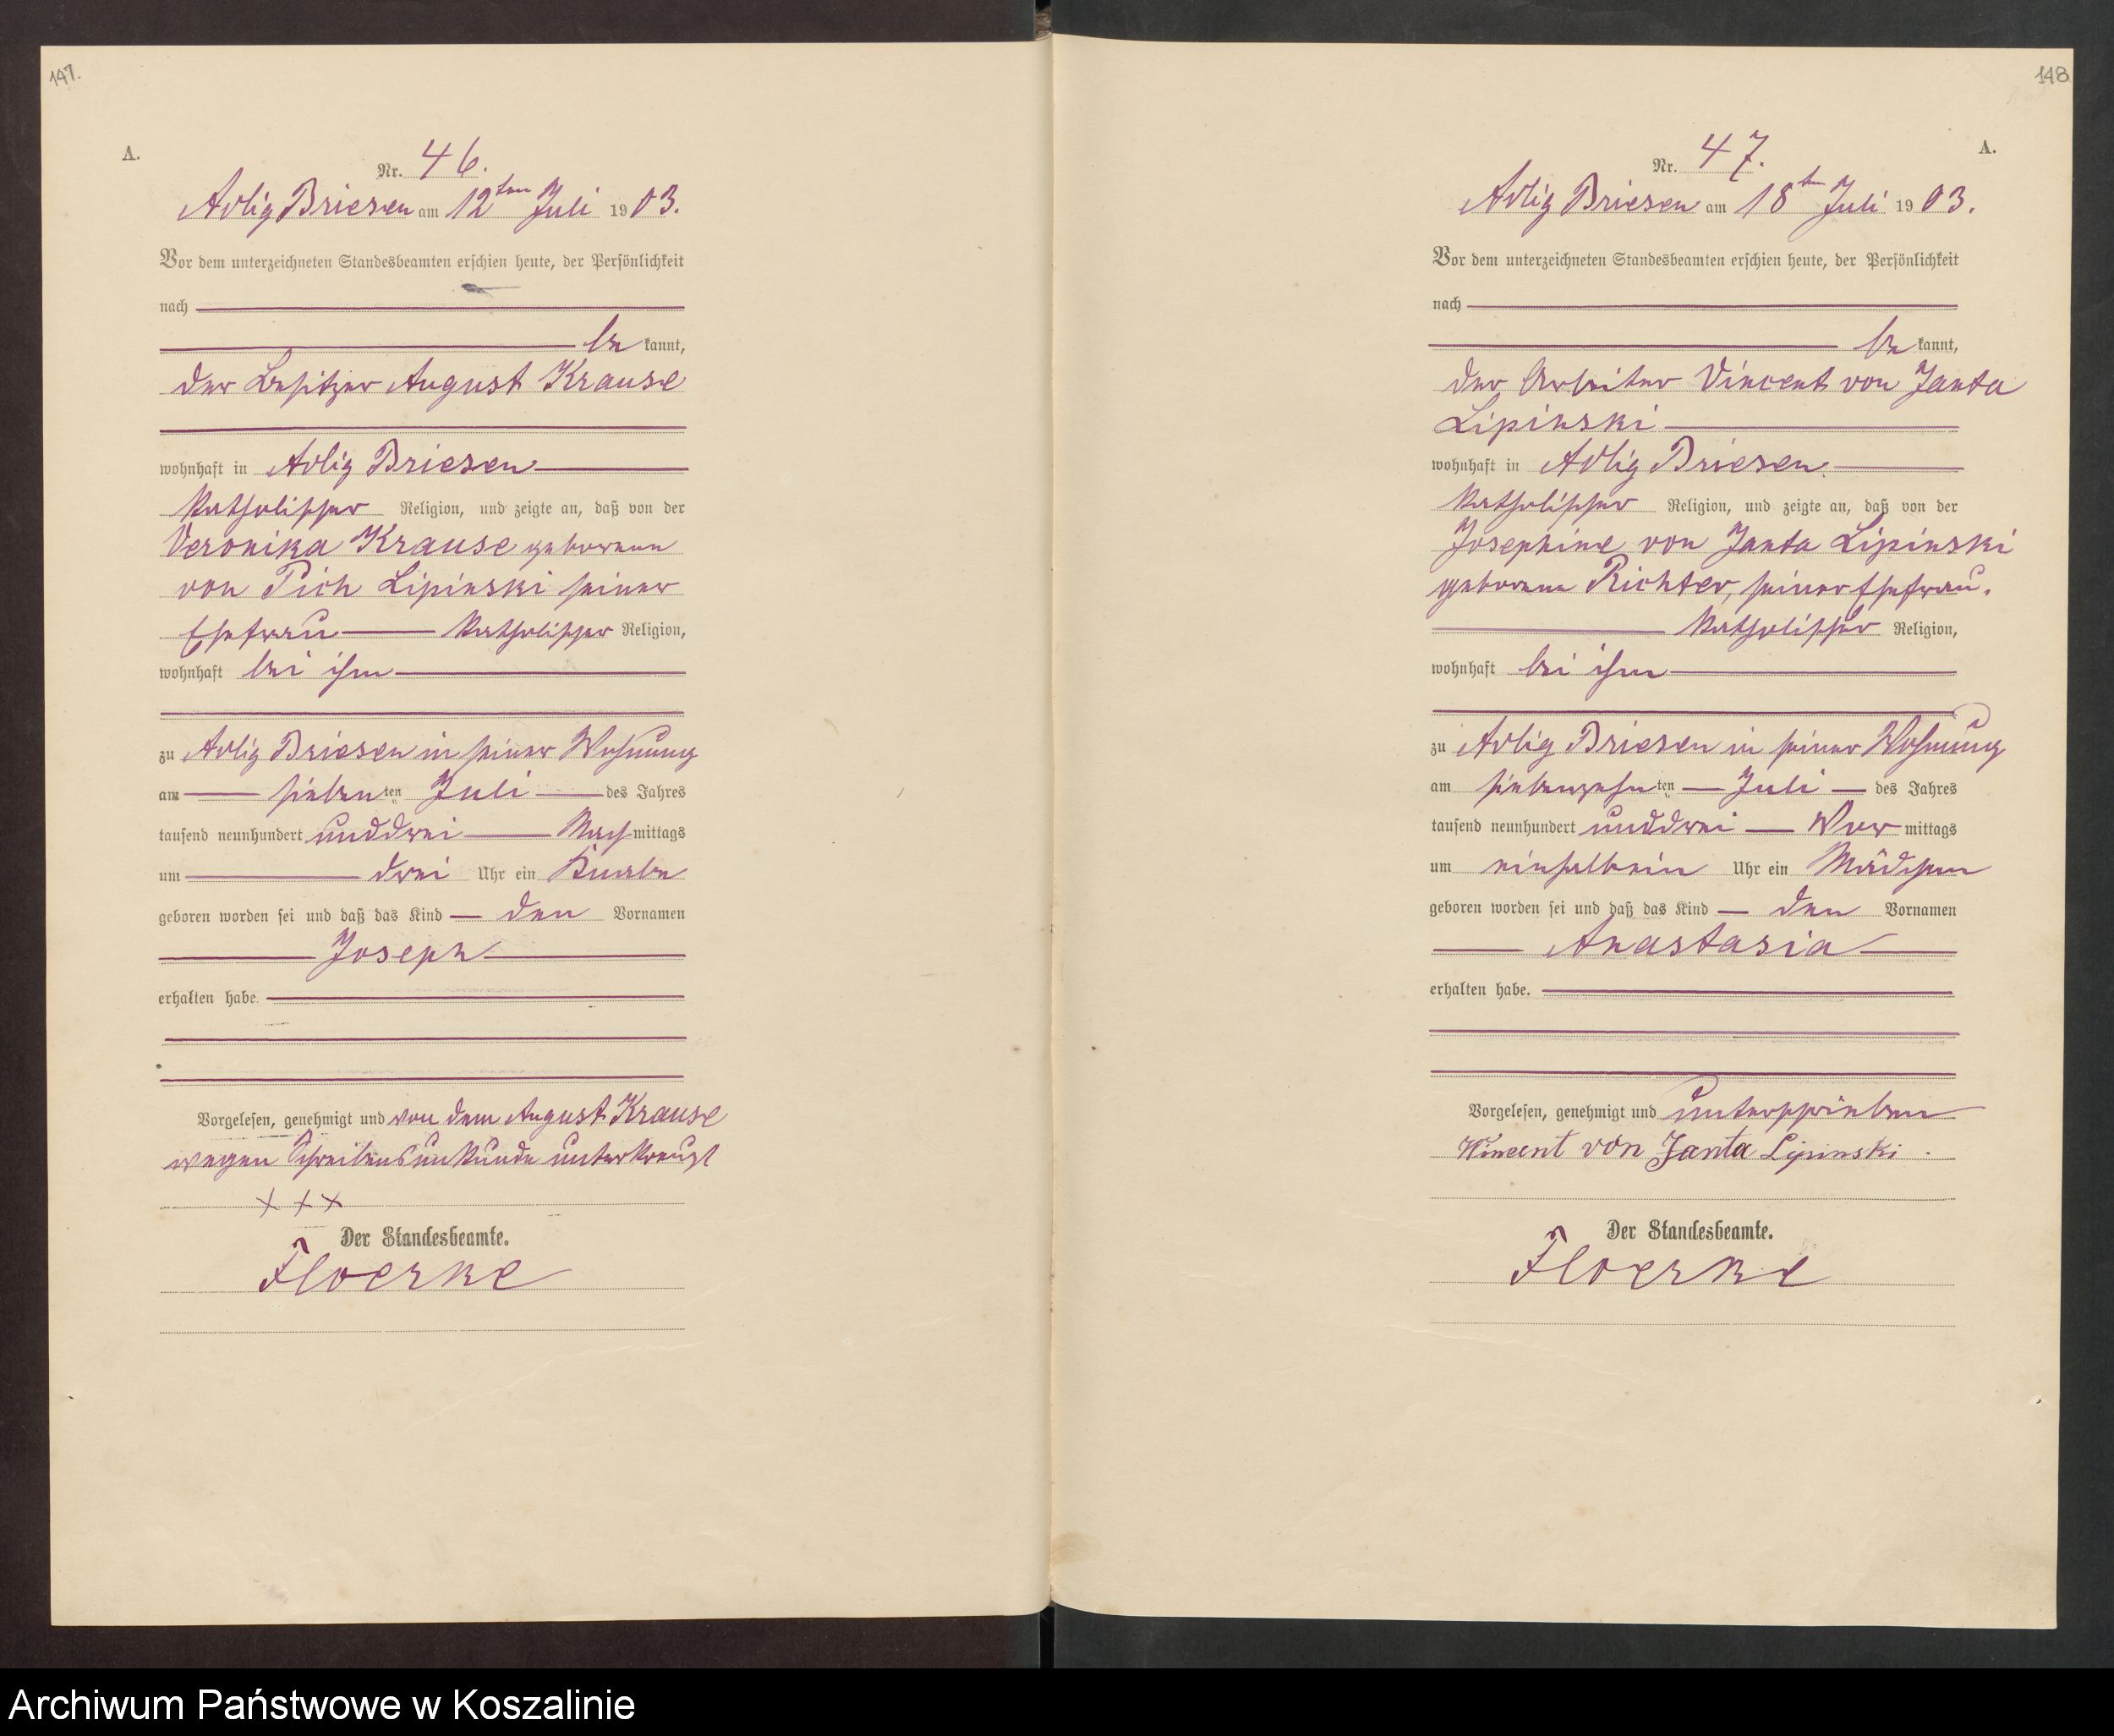 147.
A.
Nr. 46.
Adlig Briesen am 12ten Juli 1903.
Vor dem unterzeichneten Standesbeamten erschien heute, der Persönlichkeit
nach
be kannt,
der Besitzer August Krause
wohnhaft in Adlig Briesen
katholischer Religion, und zeigte an, daß von der
Veronika Krause geborenen
von Pich Lipinski seiner
Ehefrau katholischer Religion,
wohnhaft bei ihm
zu Adlig Briesen in seiner Wohnung
am siebenten Juli des Jahres
tausend neunhundert unddrei Nachmittags
um drei Uhr ein Knabe
geboren worden sei und daß das Kind den Vornamen
Joseph
erhalten habe.
Vorgelesen, genehmigt und von dem August Krause
wegen Schreibensunkunde unterkreuzt
+++
Der Standesbeamte.
Floerke
148
A.
Nr. 47.
Adlig Briesen am 18ten Juli 1903.
Vor dem unterzeichneten Standesbeamten erschien heute, der Persönlichkeit
nach
be kannt,
der Arbeiter Vincent von Janta
Lipinski
wohnhaft in Adlig Briesen
katholischer Religion, und zeigte an, daß von der
Josephine von Janta Lipinski
geborene Richter, seiner Ehefrau,
katholischer Religion,
wohnhaft bei ihm
zu Adlig Briesen in seiner Wohnung
am siebenzehnten Juli des Jahres
tausend neunhundert unddrei Vor mittags
um einhalbein Uhr ein Mädchen
geboren worden sei und daß das Kind den Vornamen
Anastasia
erhalten habe.
Vorgelesen, genehmigt und unterschrieben
Wincent von Janta Lipinski
Der Standesbeamte.
Floerke
Archiwum Państwowe w Koszalinie